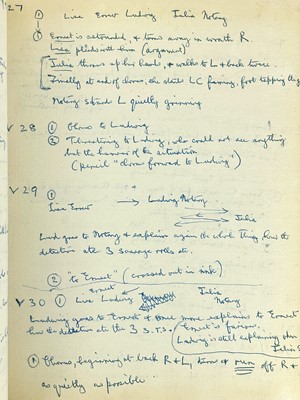 27
① Lisa Ernest Ludwig Julia Notary
① Ernest is astounded, & turns away in wrath R.
Lisa pleads with him (argument)
Julia throws up his hands, & walks to L & back to c.
Finally at end of chorus, she stands LC fuming, foot tapping
Notary stands L quietly grinning
V 28 ① Chorus to Ludwig
② Threatening to Ludwig, who could not see anything
but the humour of the situation
(pencil "chorus forward to Ludwig")
V 29
①
Lisa Ernest → Ludwig Notary
Julia
Ludwig goes to Notary & explains again the whole thing, how the
detective ate 3 sausage rolls etc.
② "to Ernest" (crossed out in ink)
V 30 ① Lisa Ludwig Ernest Julia
Notary
Ludwig goes to Ernest & once more explains to Ernest
how the detective ate the 3 S.R.s.
Ernest is furious.
Ludwig is still explaining when
Julia
① Chorus, beginning at back R & L, turn & run off R &
as quietly as possible.